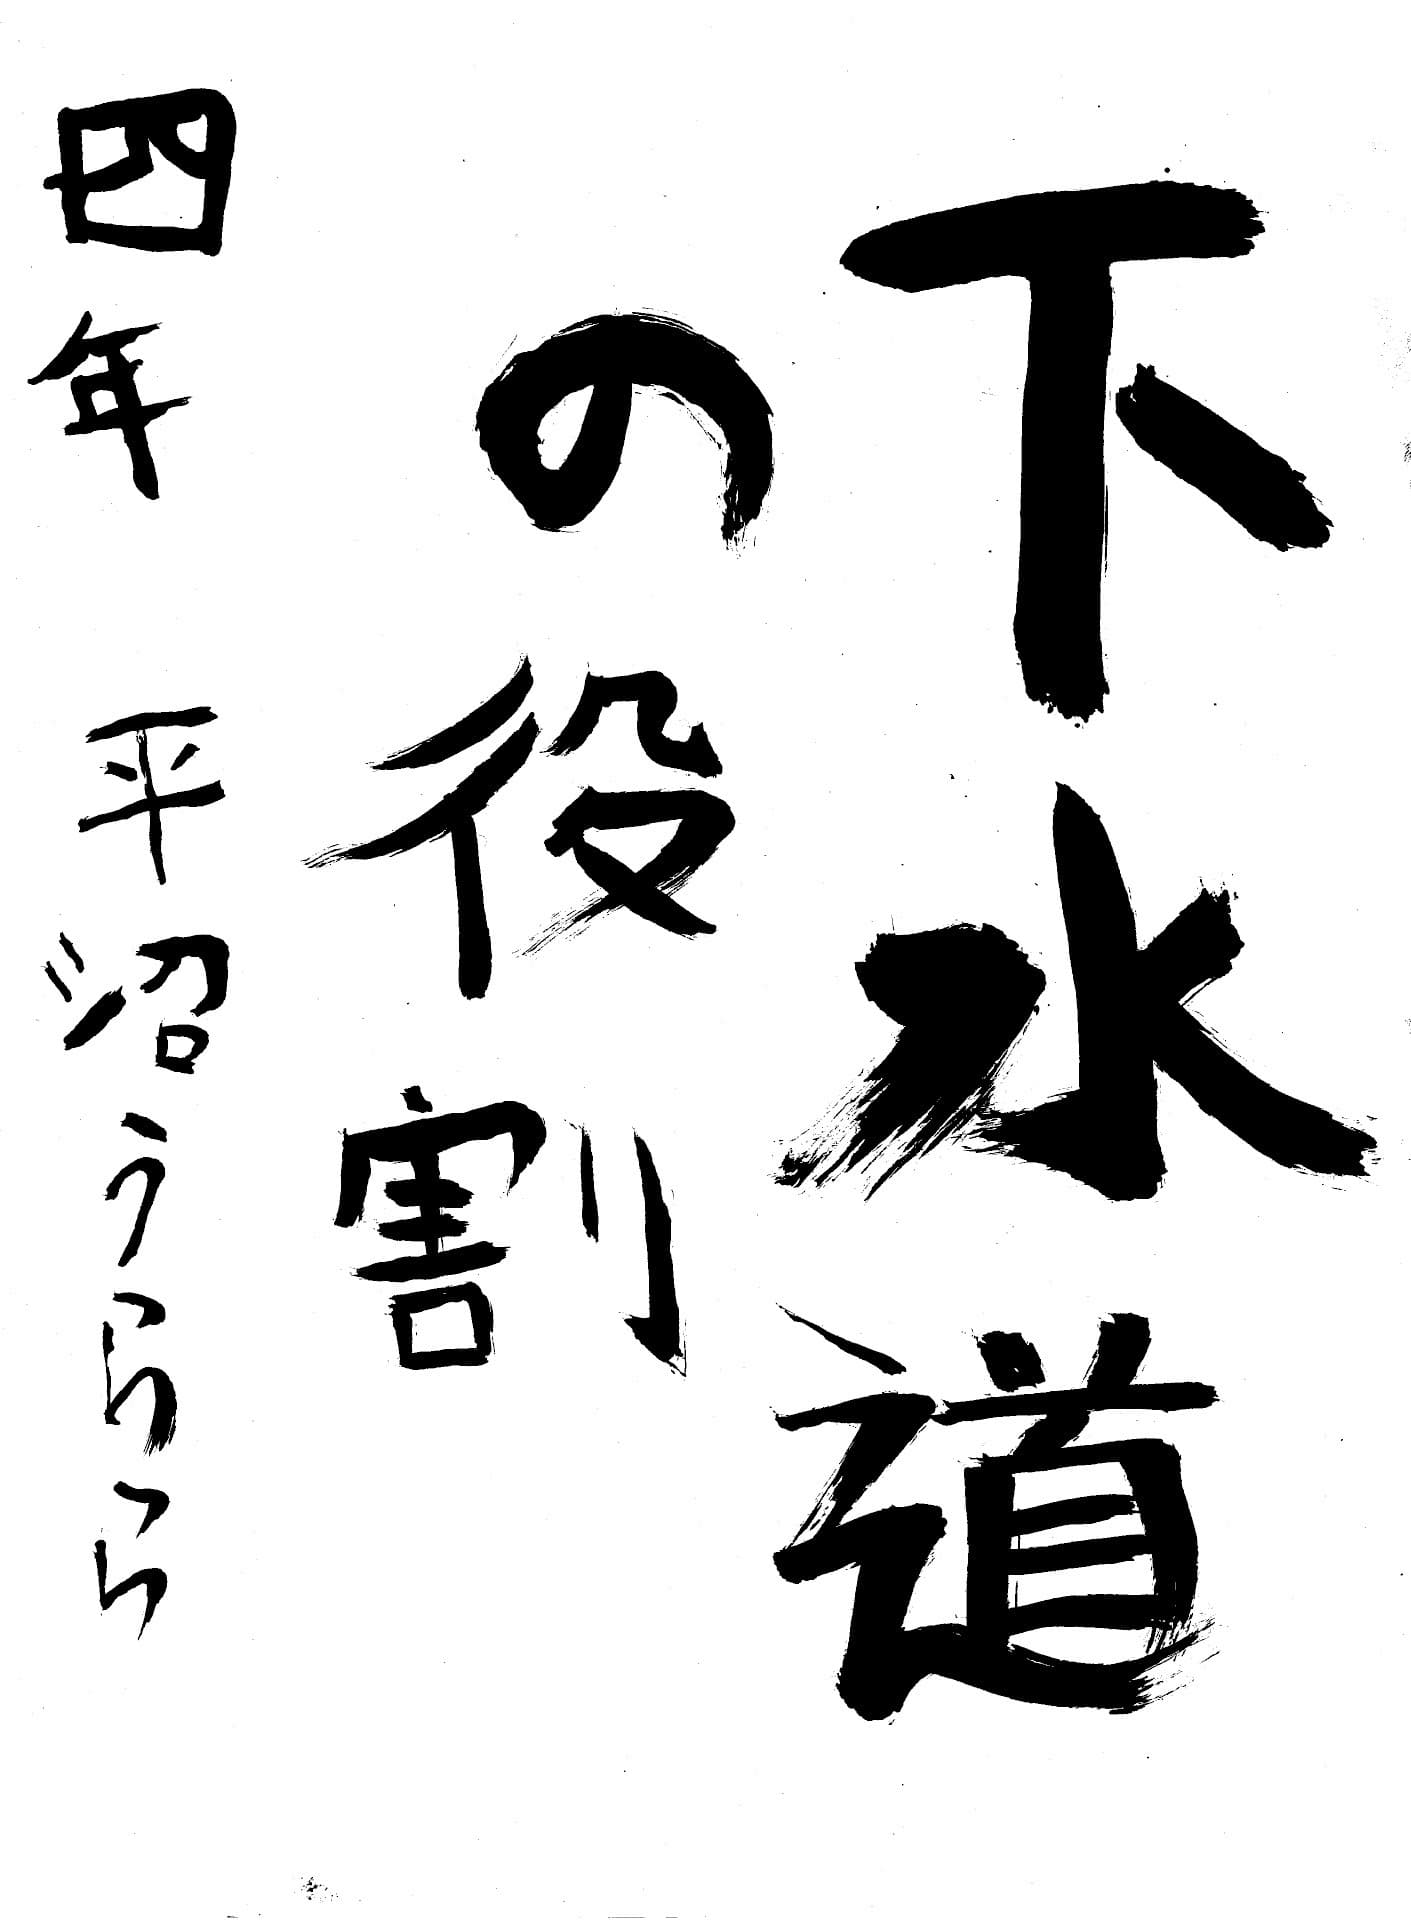 下水道
の役割
四年 平沼うらら